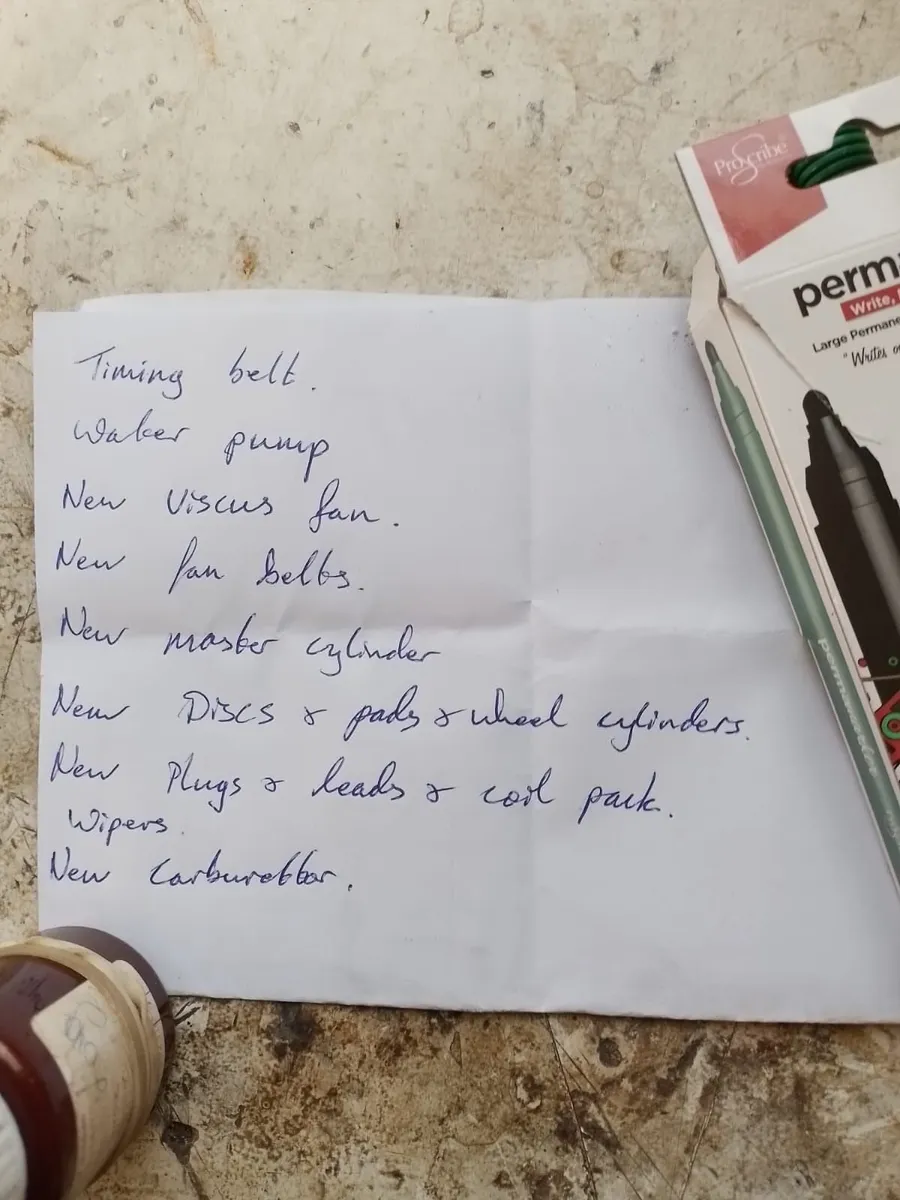 Timing belt.
Water pump
New Viscus fan.
New fan belts.
New master cylinder
New Discs & pads & wheel cylinders.
New Plugs & leads & coil pack.
Wipers.
New Carburettor.
ProScribe
perm
Write,
Large Permane
"Writes o
permanent